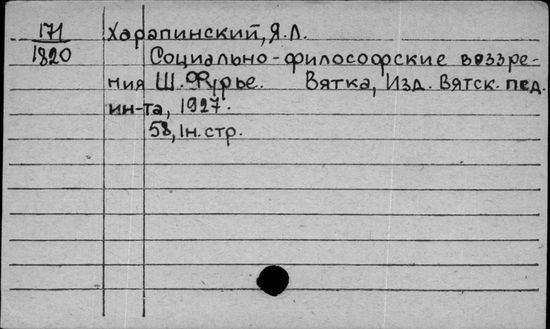 171
1820
Харапинский, Я.Л.
Социально-философские воззре-
ния Ш. Фурье. Вятка, Изд. Вятск. пед.
ин-та, 1927.
58, Iн. стр.